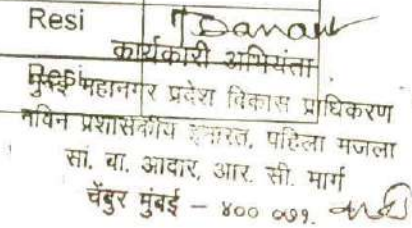 Resi
कार्यकारी अभियंता
Resi
मुंबई महानगर प्रदेश विकास प्राधिकरण
नविन प्रशासकीय इमारत, पहिला मजला
सां. बा. आदार, आर. सी. मार्ग
चेंबुर मुंबई - ४०० ०७१.